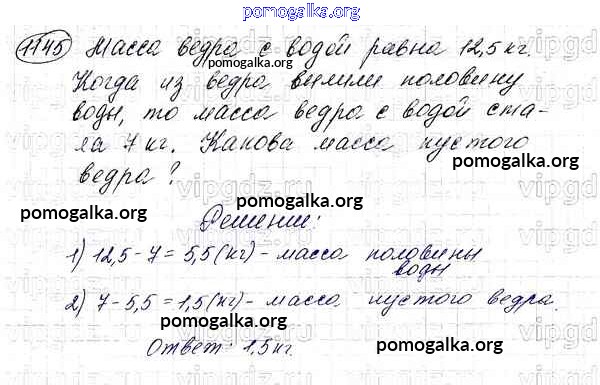 pomogalka.org
1145 Масса ведра с водой равна 12,5 кг.
pomogalka.org
Когда из ведра вылили половину
pomogalka.org
воды, то масса ведра с водой ста-
ла 7 кг. Какова масса пустого
pomogalka.org
ведра?
pomogalka.org
pomogalka.org
Решение:
1) 12,5 - 7 = 5,5 (кг) - масса половины
воды
pomogalka.org
2) 7 - 5,5 = 1,5 (кг) - масса пустого ведра.
pomogalka.org
pomogalka.org
Ответ: 1,5 кг.
vipgdz.ru